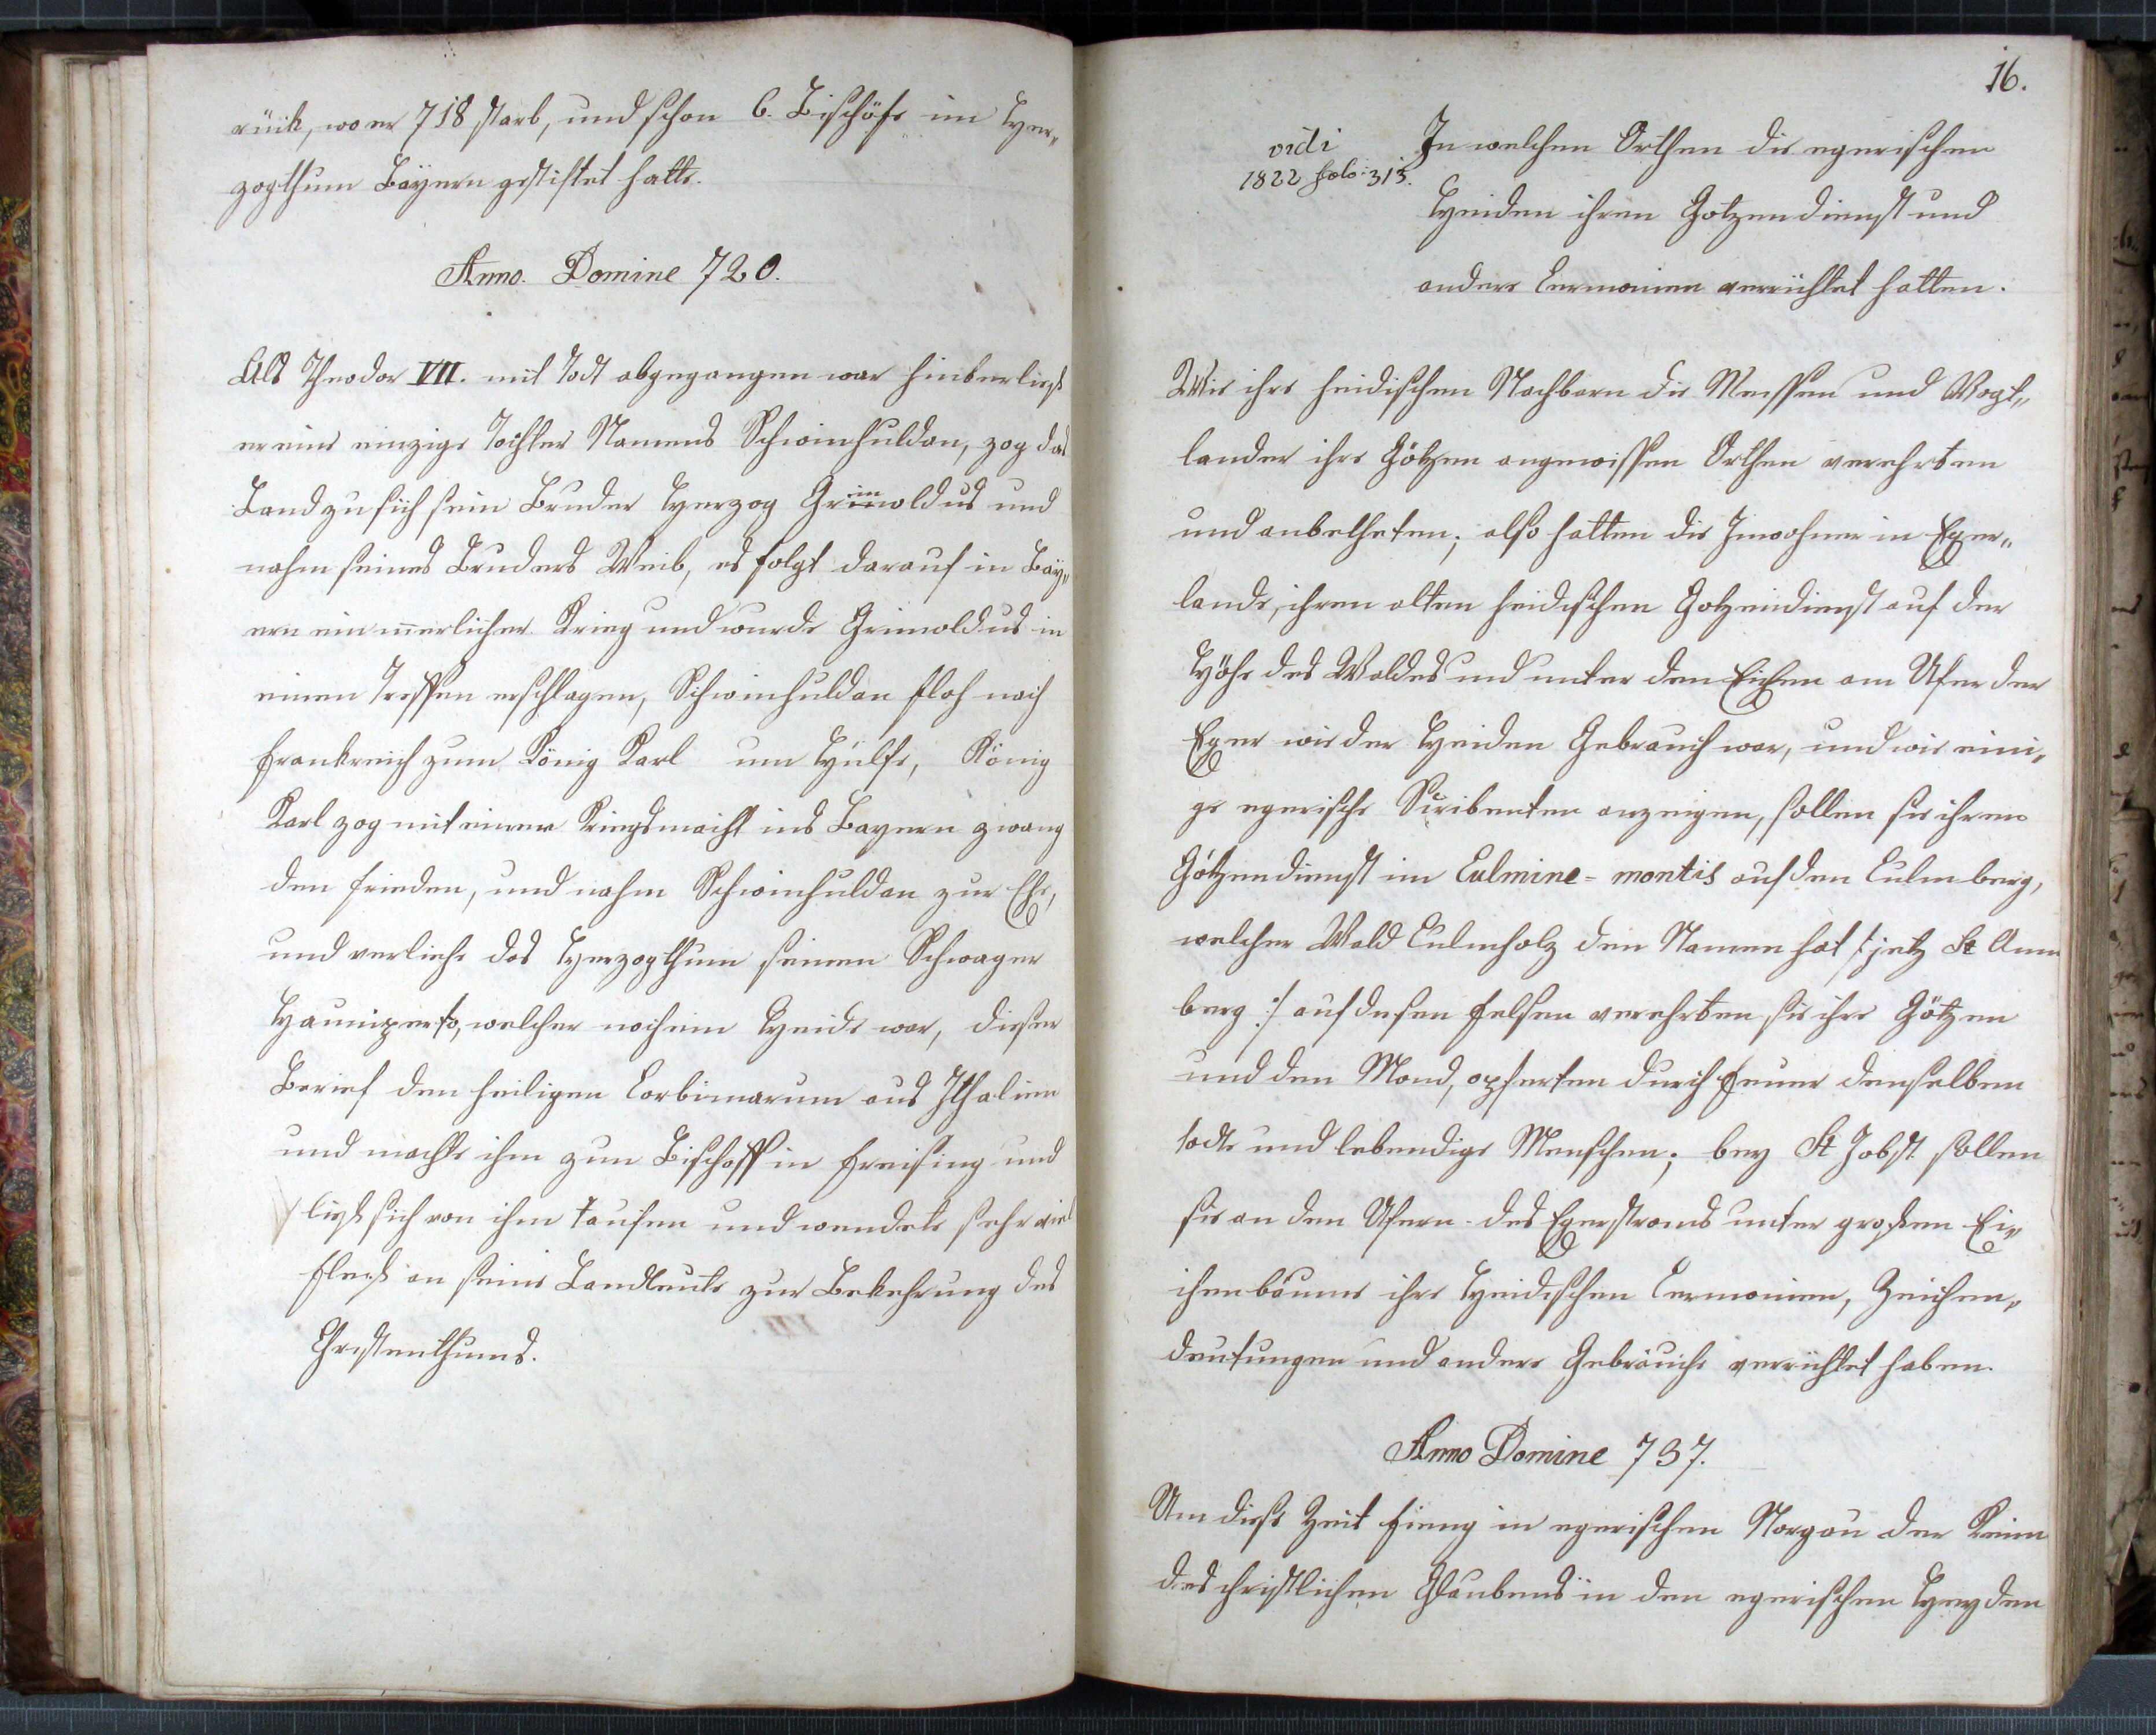 rück, wo er 718 starb, und schon 6. Bischöfe im Her„
zogthum Bayern gestiftet hatte.
Anno. Domine 720.
Als Theodor VII. mit Todt abgegangen war hinberließ
er eine einzige Tochter Namens Schwinhuldan, zog das
Land zu sich sein Bruder Herzog Grimoldus und
nahm seines Bruders Weib, es folgt darauf in Bay„
ern ein inerlicher Krieg und wurde Grimoldus in
einen Treffen erschlagen, Schwinhuldan floh nach
Frankreich zum König Karl um Hülfe, König
Karl zog mit einer Kriegsmacht ins Bayern zwang
den Frieden, und nahm Schwinhuldan zur Ehe,
und verliehe das Herzogthum seinen Schwager
Hauniperto, welcher noch ein Heide war, dieser
Berief den heiligen Corbinarum aus Ithalien
und machte ihm zum Bischoff in Freising und
ließ sich von ihm taufen und wendete sehr viel
Fleiß an seine Landleute zur Bekehrung des
Christenthums.
16.
vidi
1822 folo: 315.
In welchen Orthen die egerischen
Heiden ihren Gotzendienst und
andere Cermonien verrichtet hatten.
Wie ihre heidischen Nachbarn die Meissen und Vogt„
lander ihre Götzen angewissen Orthen verehrten
und anbetheten; also hatten die Inwohner in Eger„
lande, ihren alten heidischen Gotzendienst auf der
Höhe des Waldes und unter den Eichen am Ufer der
Eger wie der Heiden Gebrauch war, und wie eini„
ge egerische Scribenten anzeigen, sollen sie ihren
Götzendienst im Culmine-montis auf den Culmberg,
welcher Wald Culmholz den Namen hat /: jetz St Ann
berg :/ auf desen Felsen verehrten sie ihre Götzen
und den Mond, opferten durch Feuer denselben
todte und lebendige Menschen; bey St Jobst sollen
sie an den Ufern des Egerstroms unter großen Ei„
chenbäume ihre Heidischen Cermonien, Zeichen„
deutungen und andere Gebräuche verrichtet haben.
Anno Domine 737.
Um diese Zeit fieng in egerischen Norgau der Keim
des christlichen Glaubens in den egerischen Heyden